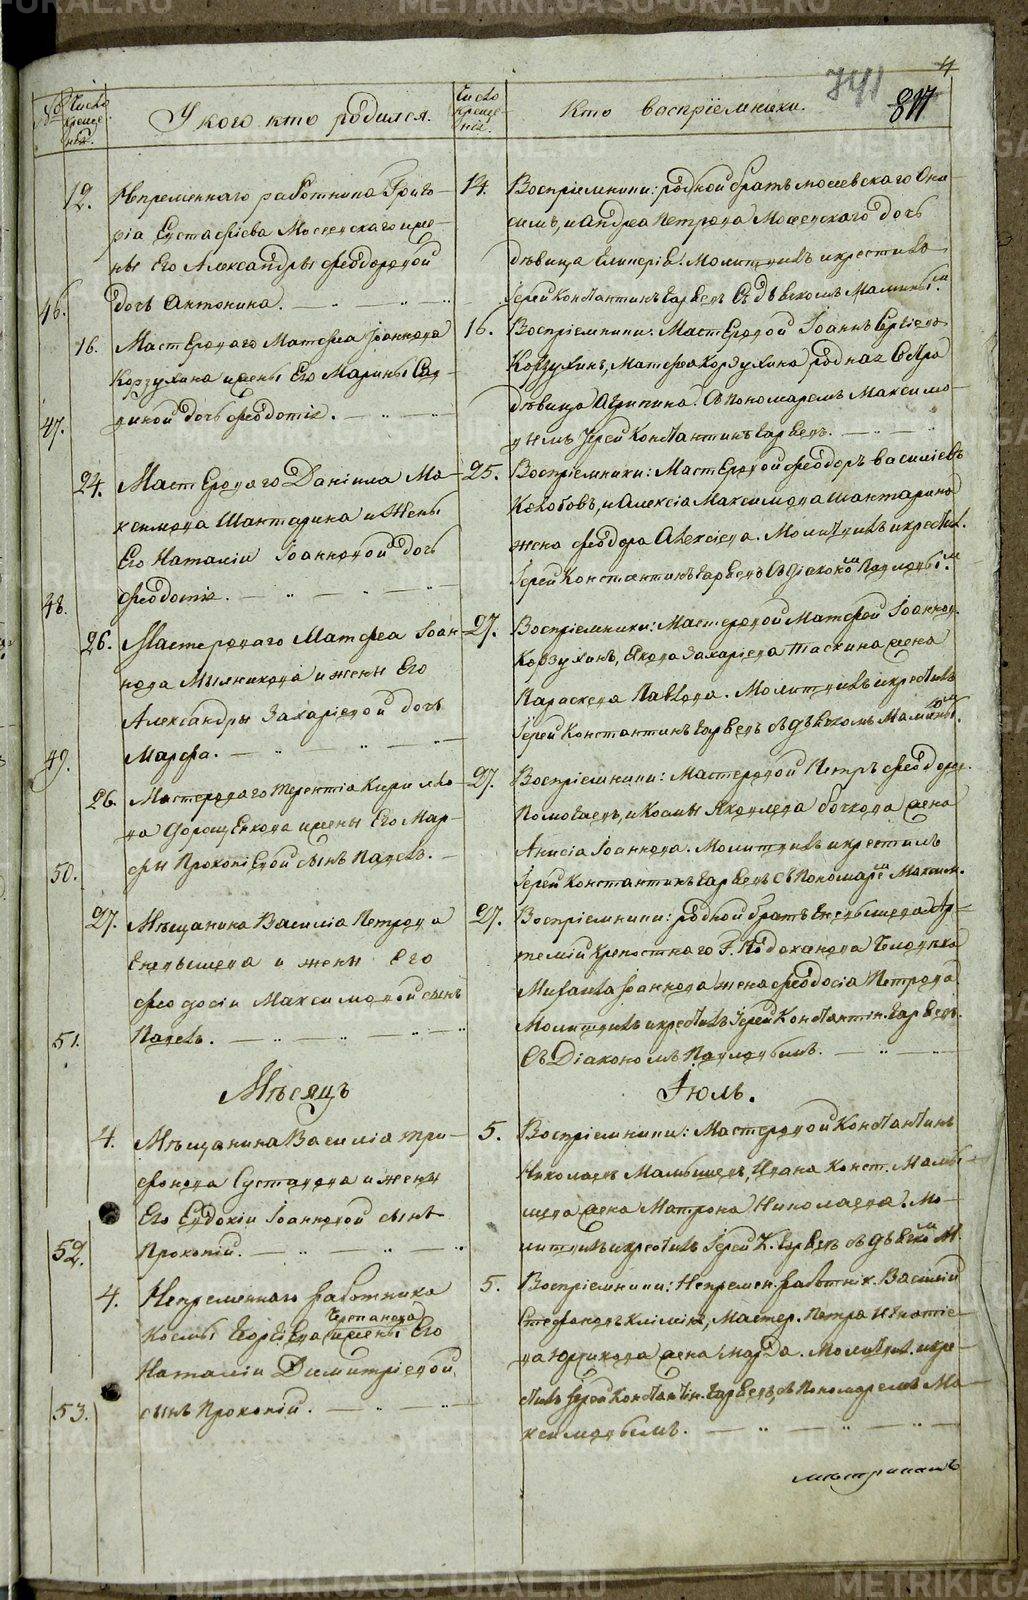 741
4
817
№
Число рожде-
нія.
У кого кто родился.
Число
креще-
нія.
Кто воспріемники.
12.
Непременнаго работника Григо-
рія Евстафіева Мосеевскаго и же-
ны Его Александры Феодоровой
46.
дочь Антонина.
14.
Воспріемники: родной братъ Мосеевскаго Они-
симъ, и Андрея Петрова Мосеевскаго дочь
дѣвица Гликерія. Молитвилъ и крестилъ
Іерей Константинъ съ дьячкомъ Маминым
16.
Мастероваго Матфея Іоаннова
Корзухина и жены Его Марины
47.
дочь Феодотія.
16.
Воспріемники: Мастеровой Іоаннъ Сергіевъ
Корзухинъ, Матфея Корзухина родная сестра
дѣвица Агрипина. Съ пономаремъ Максимо-
вымъ Іерей Константинъ
24.
Мастероваго Даніила Ма-
ксимова Шантарина и жены
Его Наталіи Іоанновой дочь
48.
Феодотія.
25.
Воспріемники: Мастеровой Феодоръ Василіевъ
и Алексія Максимова Шантарина
жена Феодора Алексіева. Молитвилъ и крестил.
Іерей Константинъ съ діакономъ Павловы.м
26.
Мастероваго Матфея Іоан-
нова Мыльникова и жены Его
Александры Захаріевой дочь
49.
Марфа.
27.
Воспріемники: Мастеровой Матфей Іоаннов.
Корзухинъ, Якова Захаріева Таскина жена
Параскева Павлова. Молитвилъ и крестилъ
Іерей Константинъ съ дьячкомъ Мамины.м
26.
Мастероваго Терентія Кирило-
ва и жены Его Мар-
50.
фы Прокопіевой сынъ Павелъ.
27.
Воспріемники: Мастеровой Петръ Феодоров.
и Космы Яковлева Бочкова жена
Анисія Іоаннова. Молитвилъ и крестилъ
Іерей Константинъ съ Пономарем Максим.
27.
Мѣщанина Василія Петрова
и жены Его
Феодосіи Максимовой сынъ
51.
Павелъ.
27.
Воспріемники: родной братъ Ар-
темій крепостнаго Г.
Михаила Іоаннова жена Феодосія Петрова.
Молитвилъ и крестилъ Іерей Константін.
Съ Діакономъ Павловымъ.
Мѣсяцъ
Іюль.
4.
Мѣщанина Василія Три-
фонова и жены
Его Евдокіи Іоанновой сынъ
52.
Прокопій.
5.
Воспріемники: Мастеровой Константинъ
Николаевъ Малышевъ, Ивана Конст. Малы-
шева жена Матрона Николаева. Мо-
литвилъ и крестилъ Іерей К. съ дьячком М.
4.
Непременнаго работника
Космы Георгіева Черпанова и жены Его
Наталіи Димитріевой
53.
сынъ Прокопій.
5.
Воспріемники: Непремен. работнік. Василій
Стефановъ Мастер. Петра Игнатіе-
ва жена Молитвил. и кре-
стилъ Іерей Константін. съ Пономаремъ Ма-
ксимовымъ.